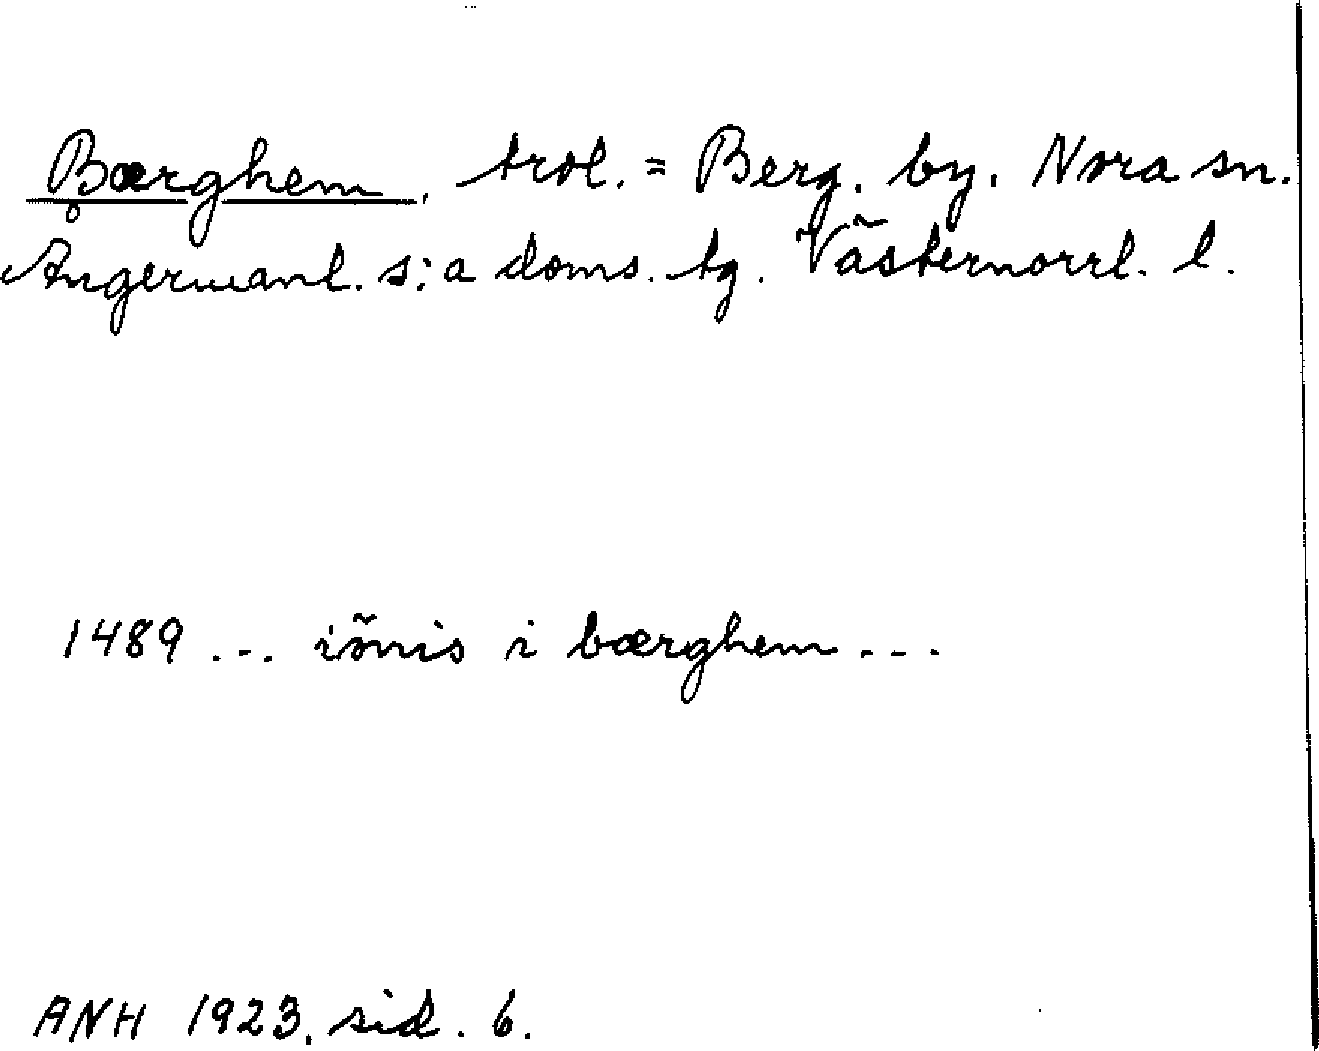 Bærghem, trol. = Berg, by, Nora sn.
Ångermanl. s:a doms. tg. Västernorrl. l.
1489 ... iönis i bærghem ...
ANH 1923, sid. 6.